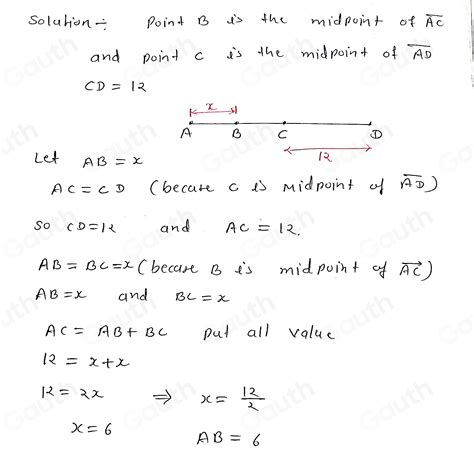 Solution:- Point B is the midpoint of A̅C̅
and point C is the midpoint of A̅D̅
CD = 12
x
A B C D
12
Let AB = x
AC = CD (becase C is midpoint of A̅D̅)
So CD=12 and AC = 12.
AB = BC=x (becase B is midpoint of AC)
AB=x and BC = x
AC = AB + BC put all value
12 = x+x
12 = 2x ⇒ x = 12/2
x = 6
AB = 6
Gauth